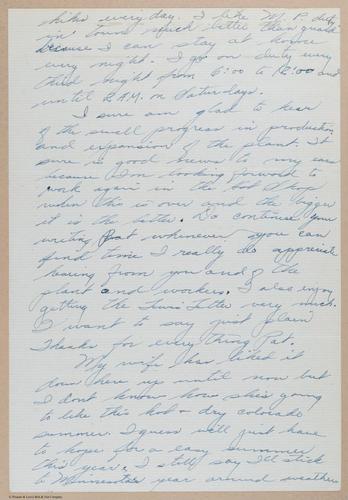 hike every day. I like M.P. duty
in town much better than guard
because I can stay at home
every night. I go on duty every
third night from 6:00 to 12:00 and
until 2 A.M. on Saturdays.
I sure am glad to hear
of the swell progress in production
and expansion of the plant. It
sure is good news to my ears
because I'm looking forward to
work again in the bot Shop
when this is over and the bigger
it is the better. Do continue your
writing Pat whenever you can
find time I really do appreciate
hearing from you and of the
plant and workers. I also enjoy
getting the News Letter very much.
I want to say just plain
Thanks for every thing Pat.
My wife has liked it
down here up until now but
I dont know how she's going
to like this hot & dry colorado
summer. I guess will just have
to hope for a easy summer
this year. I still say I'll stick
to Minnesotas year around weather